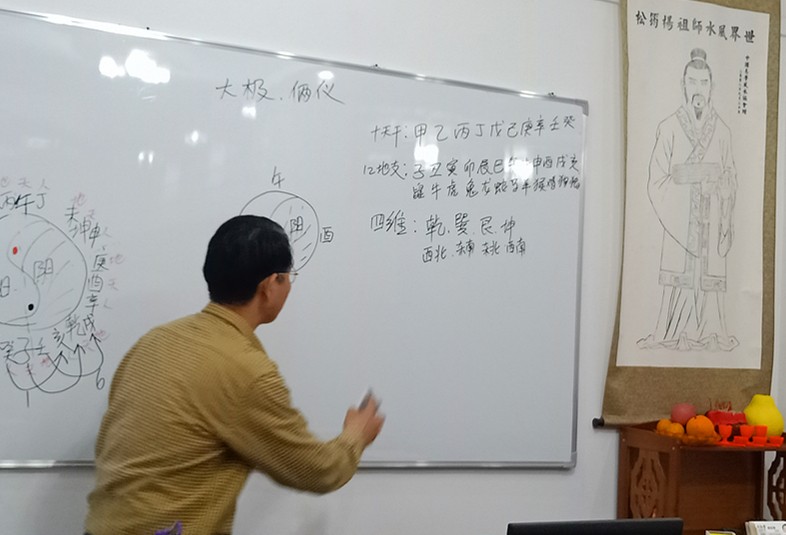 大极.俩仪
十天干:甲乙丙丁戊己庚辛壬癸
12地支:子丑寅卯辰巳午 申酉戌亥
鼠牛虎兔龙蛇马羊猴鸡狗猪
四维:乾.巽.艮.坤
西北.东南 东北 西南
午
阳
酉
地 天 人
丙午丁
未坤申
庚
酉
辛
阳
阴
癸子壬
亥乾戌
1
6
世界風水師祖楊筠松